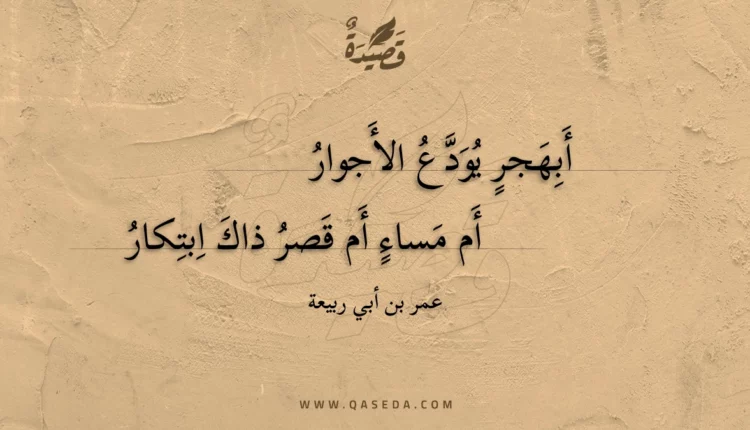 قَصِيدَةٌ
أَبِهَجرٍ يُوَدَّعُ الأَجوارُ
أَم مَساءٍ أَم قَصرُ ذاكَ اِبتِكارُ
عمر بن أبي ربيعة
WWW.QASEDA.COM